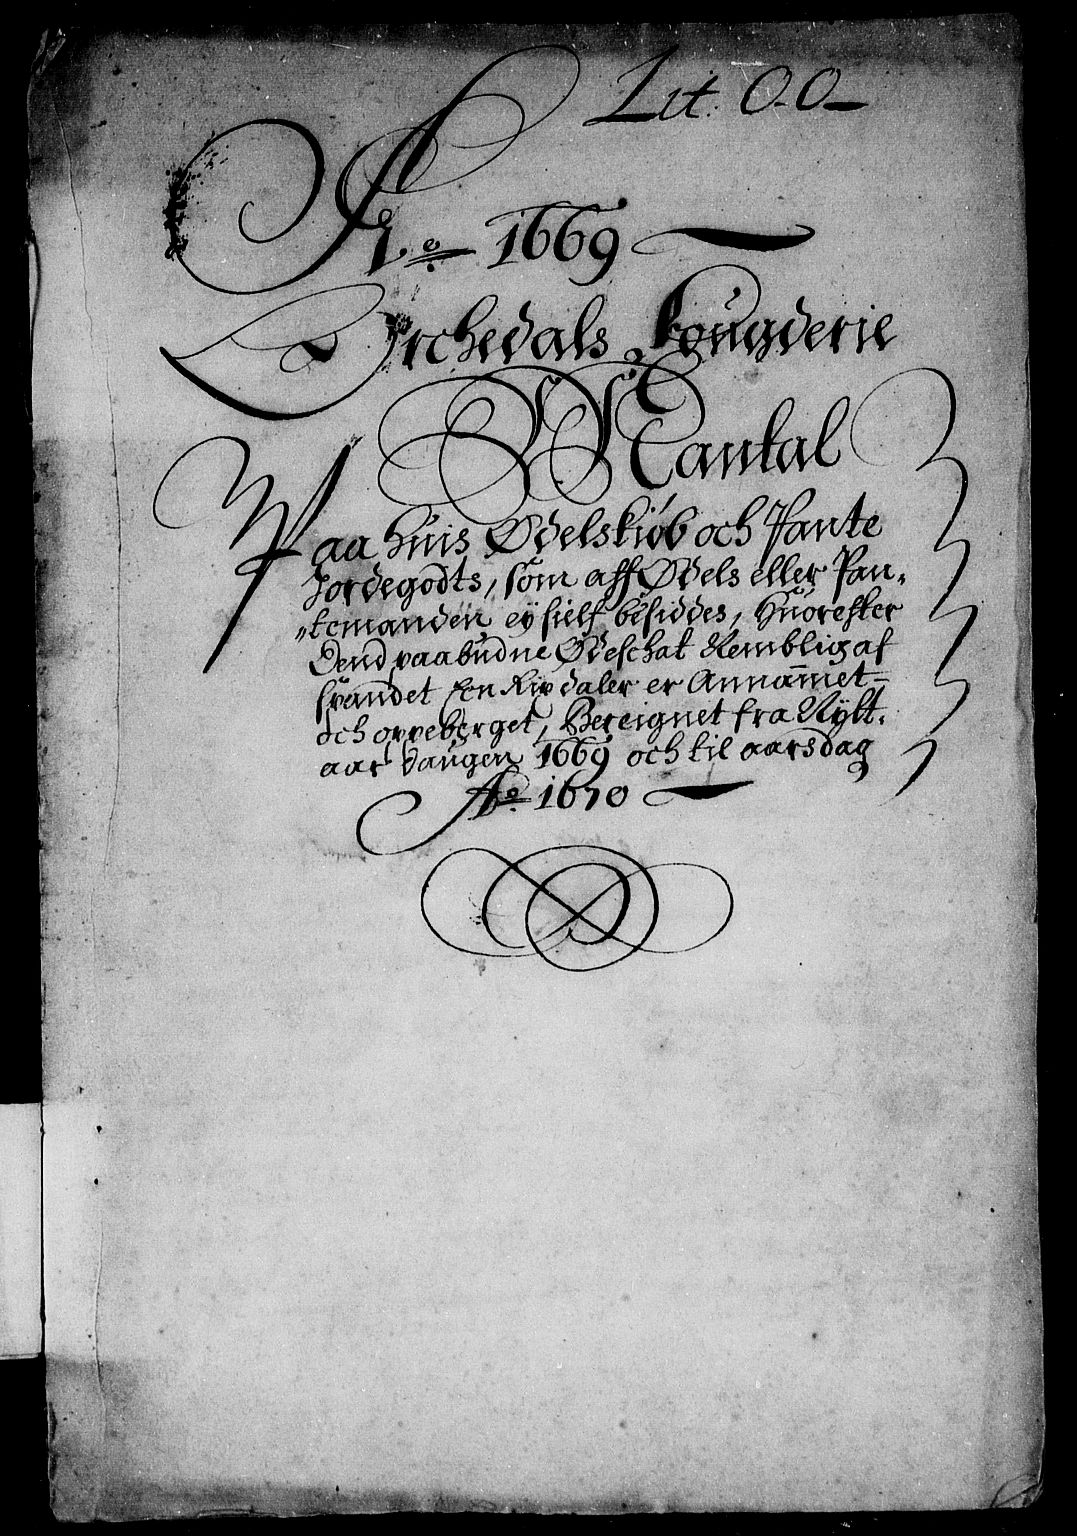 Lit. O-O
Ao 1669
Orchedals Fougderie
Mantal
Paa huis Odelskiøb och Pante
Jordegodts, som aff Odels eller Pan-
temanden ey sielf besiddes, huorefter
dend paabudne Odeschat Nemblig af
svandet Een Rix daler er Annammet
och oppeberget, Bereignet fra Nytt-
aars daugen 1669 och til aarsdag
Ao 1670